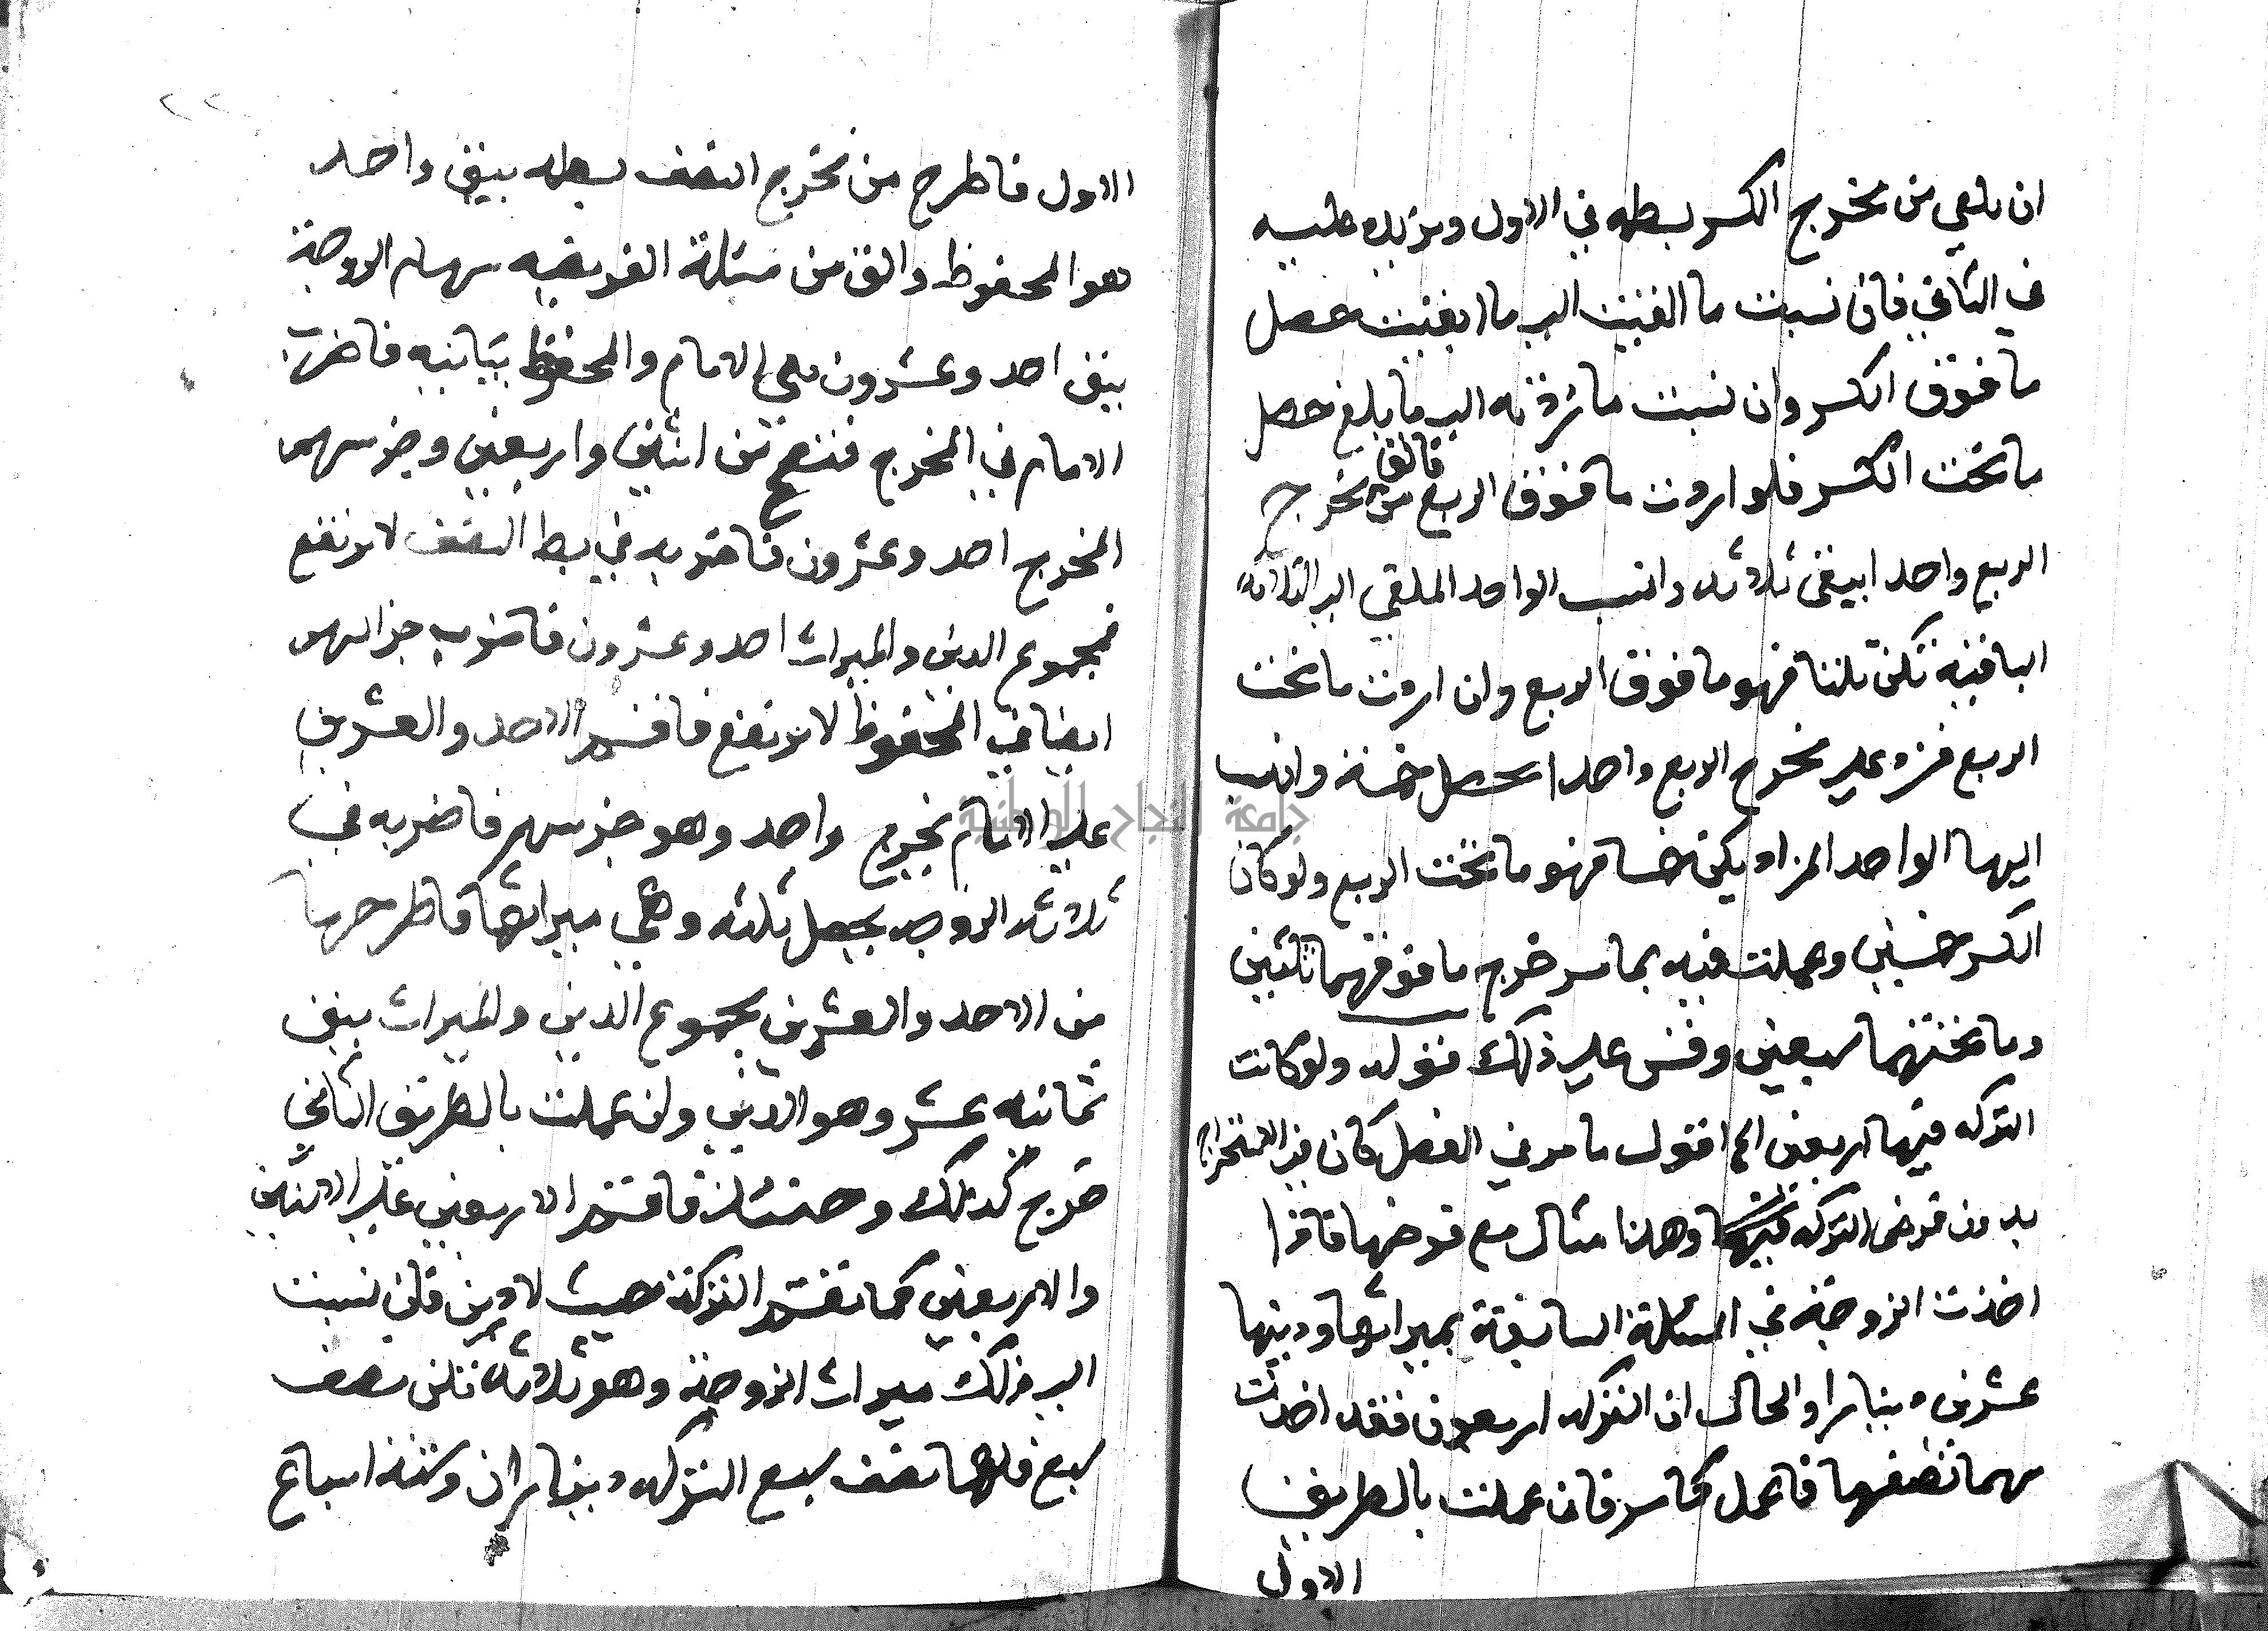 ان تلقي من مخرج الكسر بسطه في الاول وتزيده عليه
في الثاني فان نسبت ما القيت الي ما ابقيت حصل
ما فوق الكسر وان نسبت ما زدته الي ما بلغ حصل
ما تحت الكسر فلو اردت ما فوق الربع فالق من مخرج
الربع واحدا يبقى ثلاثه وانسب الواحد الملقي الي الثلاثه
الباقيه تكن ثلثا فهو ما فوق الربع وان اردت ما تحت
الربع فزد علي مخرج الربع واحدا تحصل خمسة وانسب
اليها الواحد المزاد يكن خمسا فهو ما تحت الربع ولو كان
الكسر خمسين وعملت فيه بما مر خرج ما فوقهما ثلثين
وما تحتهما سبعين وقس علي ذلك قوله ولو كانت
التركه فيها اربعين الخ اقول ما مر في الفصل كان في الاستخراج
بدون فرض التركه وهذا مثال مع فرضها فاذا
اخذت الزوجة في المسئلة السابقة بميراثها ودينها
عشرين دينارا والحال ان التركه اربعون فقد اخذت
سهما نصفها فاعمل كما مر فان عملت بالطريق
الاول
الاول فاطرح من مخرج النصف بسطه يبقى واحد
هو المحفوظ والق من مسئلة الفريضه سهام الزوجة
يبقى احد وعشرون هي الامام والمحفوظ يباينه فاضرب
الامام في المخرج فتصح من اثنين واربعين وجز سهم
المخرج احد وعشرون فاضربه في بسط النصف لا يرتفع
فمجموع الدين والميراث احد وعشرون فاضرب جز السهم
ايضا في المحفوظ لا يرتفع فاقسم الاحد والعشرين
علي الامام يخرج واحد وهو جز سهم فاضربه في
ثلاثة الزوجه يحصل ثلثه وهي ميراثها فاطرحها
من الاحد والعشرين مجموع الدين والميراث يبقى
ثمانيه عشر وهو الدين وان عملت بالطريق الثاني
خرج كذلك وحينئذ فاقسم الاربعين علي الاثنين
والاربعين كما تقسم التركة حيث لا دين فان نسبت
الي ذلك ميراث الزوجة وهو ثلاثه تكن نصف
سبع فلها نصف سبع التركه ديناران وستة اسباع